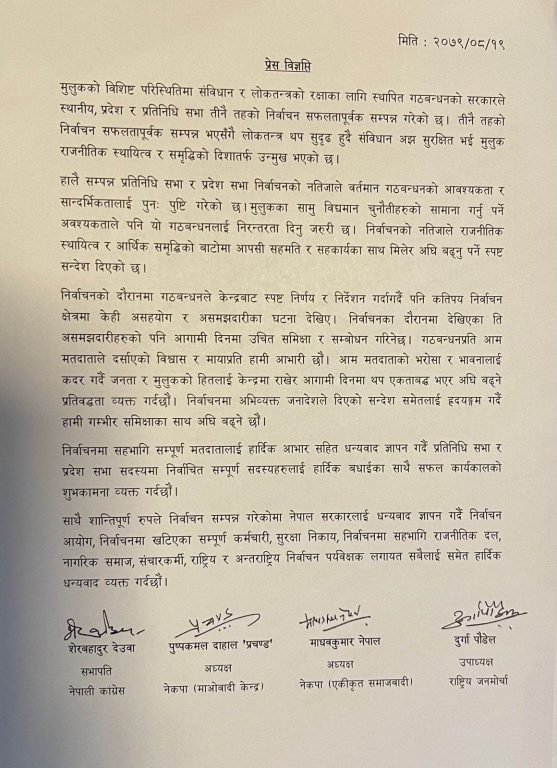 मिति : २०७९/०८/१९
प्रेस विज्ञप्ति
मुलुकको विशिष्ट परिस्थितिमा संविधान र लोकतन्त्रको रक्षाका लागि स्थापित गठबन्धनको सरकारले
स्थानीय, प्रदेश र प्रतिनिधि सभा तीनै तहको निर्वाचन सफलतापूर्वक सम्पन्न गरेको छ। तीनै तहको
निर्वाचन सफलतापूर्वक सम्पन्न भएसँगै लोकतन्त्र थप सुदृढ हुदै संविधान अझ सुरक्षित भई मुलुक
राजनीतिक स्थायित्व र समृद्धिको दिशातर्फ उन्मुख भएको छ।
हालै सम्पन्न प्रतिनिधि सभा र प्रदेश सभा निर्वाचनको नतिजाले वर्तमान गठबन्धनको आवश्यकता र
सान्दर्भिकतालाई पुनः पुष्टि गरेको छ। मुलुकका सामु विद्यमान चुनौतीहरुको सामाना गर्नु पर्ने
अवश्यकताले पनि यो गठबन्धनलाई निरन्तरता दिनु जरुरी छ। निर्वाचनको नतिजाले राजनीतिक
स्थायित्व र आर्थिक समृद्धिको बाटोमा आपसी सहमति र सहकार्यका साथ मिलेर अघि बढ्नु पर्ने स्पष्ट
सन्देश दिएको छ।
निर्वाचनको दौरानमा गठबन्धनले केन्द्रबाट स्पष्ट निर्णय र निर्देशन गर्दागर्दै पनि कतिपय निर्वाचन
क्षेत्रमा केही असहयोग र असमझदारीका घटना देखिए। निर्वाचनका दौरानमा देखिएका ति
असमझदारीहरुको पनि आगामी दिनमा उचित समिक्षा र सम्बोधन गरिनेछ। गठबन्धनप्रति आम
मतदाताले दर्साएको विश्वास र मायाप्रति हामी आभारी छौं। आम मतदाताको भरोसा र भावनालाई
कदर गर्दै जनता र मुलुकको हितलाई केन्द्रमा राखेर आगामी दिनमा थप एकताबद्ध भएर अघि बढ्ने
प्रतिवद्धता व्यक्त गर्दछौं। निर्वाचनमा अभिव्यक्त जनादेशले दिएको सन्देश समेतलाई हृदयङ्गम गर्दै
हामी गम्भीर समिक्षाका साथ अघि बढ्ने छौं।
निर्वाचनमा सहभागि सम्पूर्ण मतदातालाई हार्दिक आभार सहित धन्यवाद ज्ञापन गर्दै प्रतिनिधि सभा र
प्रदेश सभा सदस्यमा निर्वाचित सम्पूर्ण सदस्यहरुलाई हार्दिक बधाईका साथै सफल कार्यकालको
शुभकामना व्यक्त गर्दछौं।
साथै शान्तिपूर्ण रुपले निर्वाचन सम्पन्न गरेकोमा नेपाल सरकारलाई धन्यवाद ज्ञापन गर्दै निर्वाचन
आयोग, निर्वाचनमा खटिएका सम्पूर्ण कर्मचारी, सुरक्षा निकाय, निर्वाचनमा सहभागि राजनीतिक दल,
नागरिक समाज, संचारकर्मी, राष्ट्रिय र अन्तराष्ट्रिय निर्वाचन पर्यवेक्षक लगायत सवैलाई समेत हार्दिक
धन्यवाद व्यक्त गर्दछौं।
शेरबहादुर देउवा पुष्पकमल दाहाल 'प्रचण्ड' माधवकुमार नेपाल दुर्गा पौडेल
सभापति अध्यक्ष अध्यक्ष उपाध्यक्ष
नेपाली कांग्रेस नेकपा (माओवादी केन्द्र) नेकपा (एकीकृत समाजवादी) राष्ट्रिय जनमोर्चा